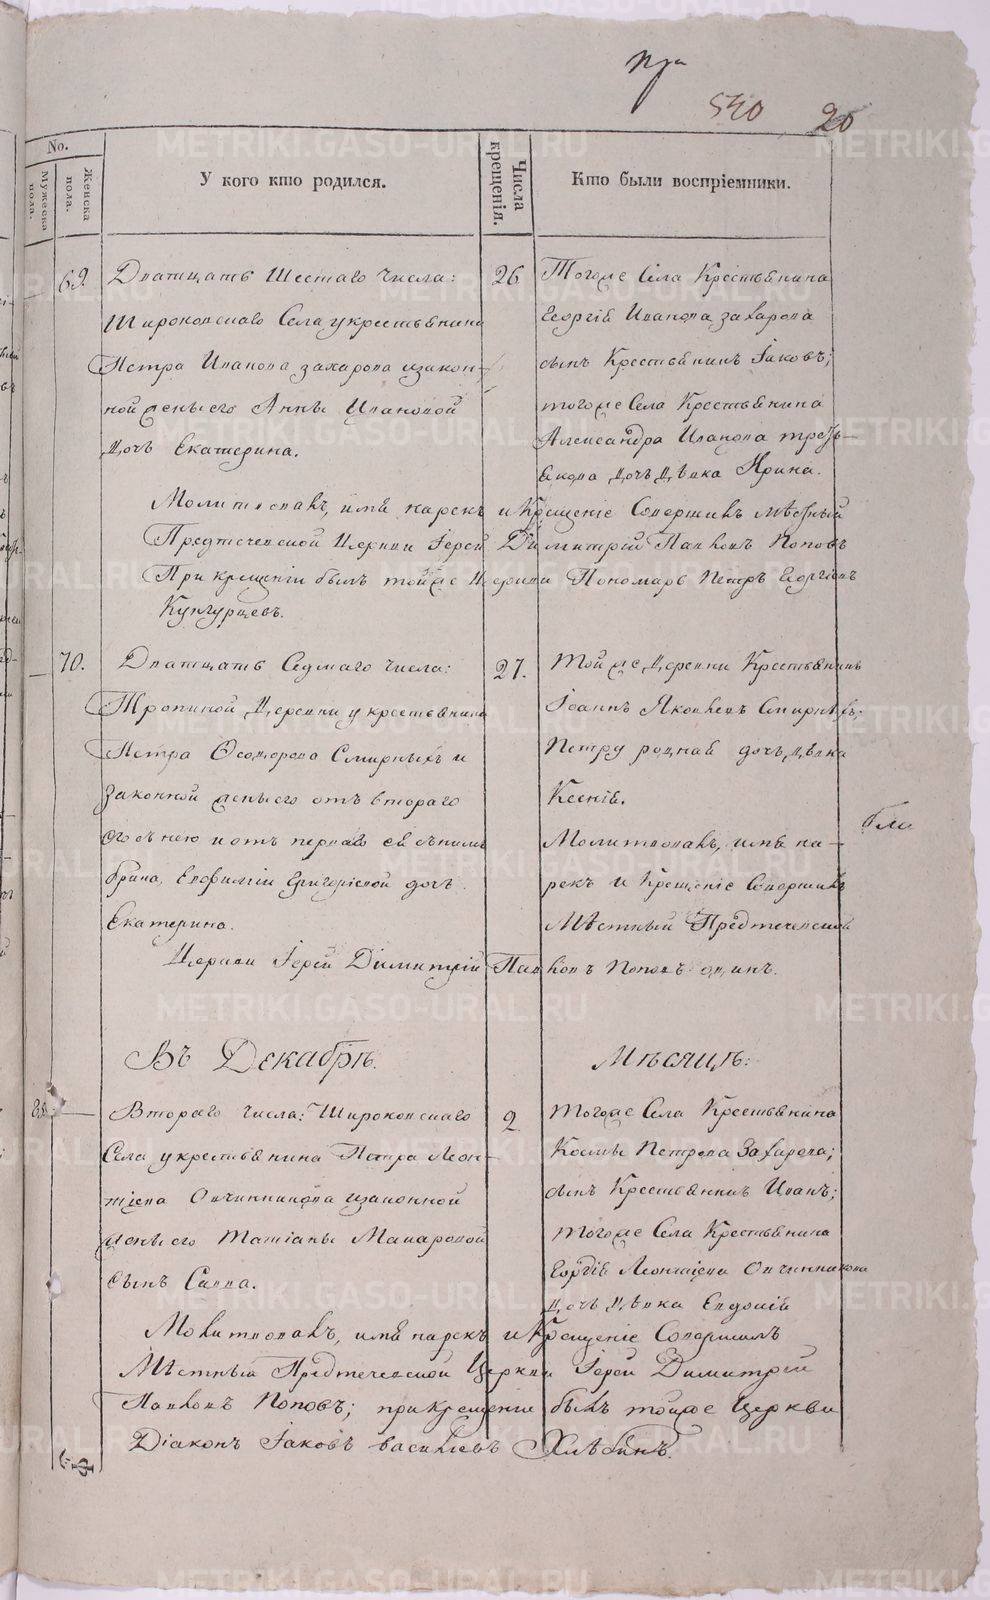 540 20
No.
Мужеска пола.
Женска пола.
У кого кто родился.
Числа крещенія.
Кто были воспріемники.
69.
Дватцать Шестаго Числа:
Широковскаго Села у крестьянина
Петра Иванова Захарова и закон-
ной жены его Анны Ивановой
дочь Екатерина.
26
Тогоже Села Крестьянина
Георгія Иванова Захарова
сынъ Крестьянинъ Іаковъ;
тогоже Села Крестьянина
Александра Иванова
дочь дѣвка Ирина.
Молитвовалъ, имя нарекъ и Крещеніе Совершилъ мѣстный
Предтечевской Церкви Іерей Димитрій Павловъ Поповъ
При крещеніи былъ тойже Церкви Пономарь Петръ Георгіевъ
Кунгурцевъ.
70.
Дватцать Седмаго Числа:
Тропиной Деревни у крестьянина
Петра Ѳеодорова Смирныхъ и
законной жены его отъ втораго
его съ нею и отъ перваго ея съ нимъ
брака, Евфиміи Григорьевой дочь
Екатерина.
27.
Тойже Деревни Крестьянинъ
Іоаннъ Яковлевъ Смирныхъ;
Петру родная дочь, дѣвка
Ксенія.
Молитвовалъ, имя на-
рекъ и Крещеніе Совершилъ
Мѣстный Предтечевской
Церкви Іерей Димитрій Павловъ Поповъ одинъ.
Въ Декабрѣ Мѣсяцѣ:
Втораго числа: Широковскаго
Села у крестьянина Петра Леон-
тіева Овчинникова и законной
жены его Татіаны Макаровой
сынъ Савва.
2
Тогоже Села Крестьянина
Космы Петрова Захарова;
сынъ Крестьянинъ Иванъ;
тогоже Села Крестьянина
Георгія Леонтіева Овчинникова
дочь дѣвка Евдокія
Молитвовалъ, имя нарекъ и Крещеніе Совершилъ
Мѣстный Предтечевской Церкви Іерей Димитрій
Павловъ Поповъ; при крещеніи былъ тойже Церкви
Діаконъ Іаковъ Васильевъ Хлѣбинъ.
METRIKI.GASO-URAL.RU